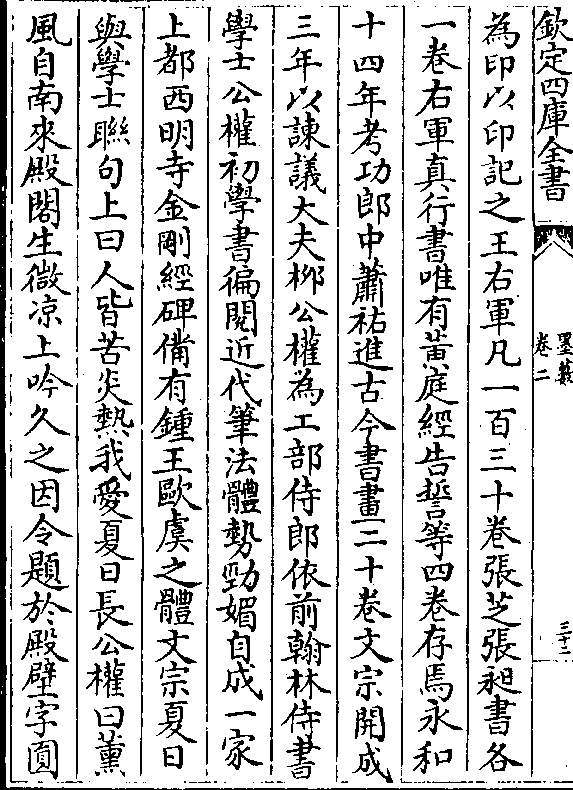 欽定四庫全書
墨藪
卷二
三十二
為印以印記之王右軍凡一百三十卷張芝張昶書各
一卷右軍真行書唯有黃庭經告誓等四卷存焉永和
十四年考功郎中蕭祐進古今書畫二十卷文宗開成
三年以諫議大夫柳公權為工部侍郎依前翰林侍書
學士公權初學書徧閱近代筆法體勢勁媚自成一家
上都西明寺金剛經碑備有鍾王歐虞之體文宗夏日
與學士聯句上曰人皆苦炎熱我愛夏日長公權曰薰
風自南來殿閣生微凉上吟久之因令題於殿壁字圓